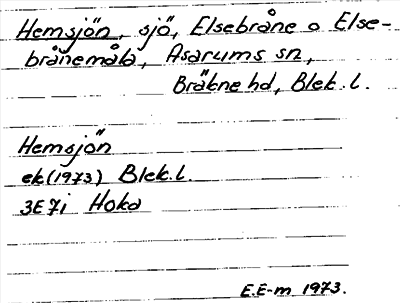 Hemsjön, sjö, Elsebråne o Else-
brånemåla, Asarums sn,
Bräkne hd, Blek. l.
Hemsjön
ek(1973) Blek. l.
3E7i Hoka
E.E-m 1973.